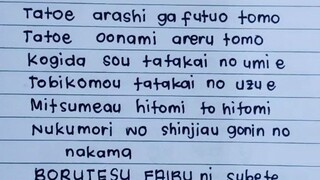 Tatoe arashi ga futuo tomo
Tatoe oonami areru tomo
Kogida sou tatakai no umi e
Tobikomou tatakai no uzu e
Mitsumeau hitomi to hitomi
Nukumori wo shinjiau gonin no
nakama
BORUTESU FAIBU ni subete